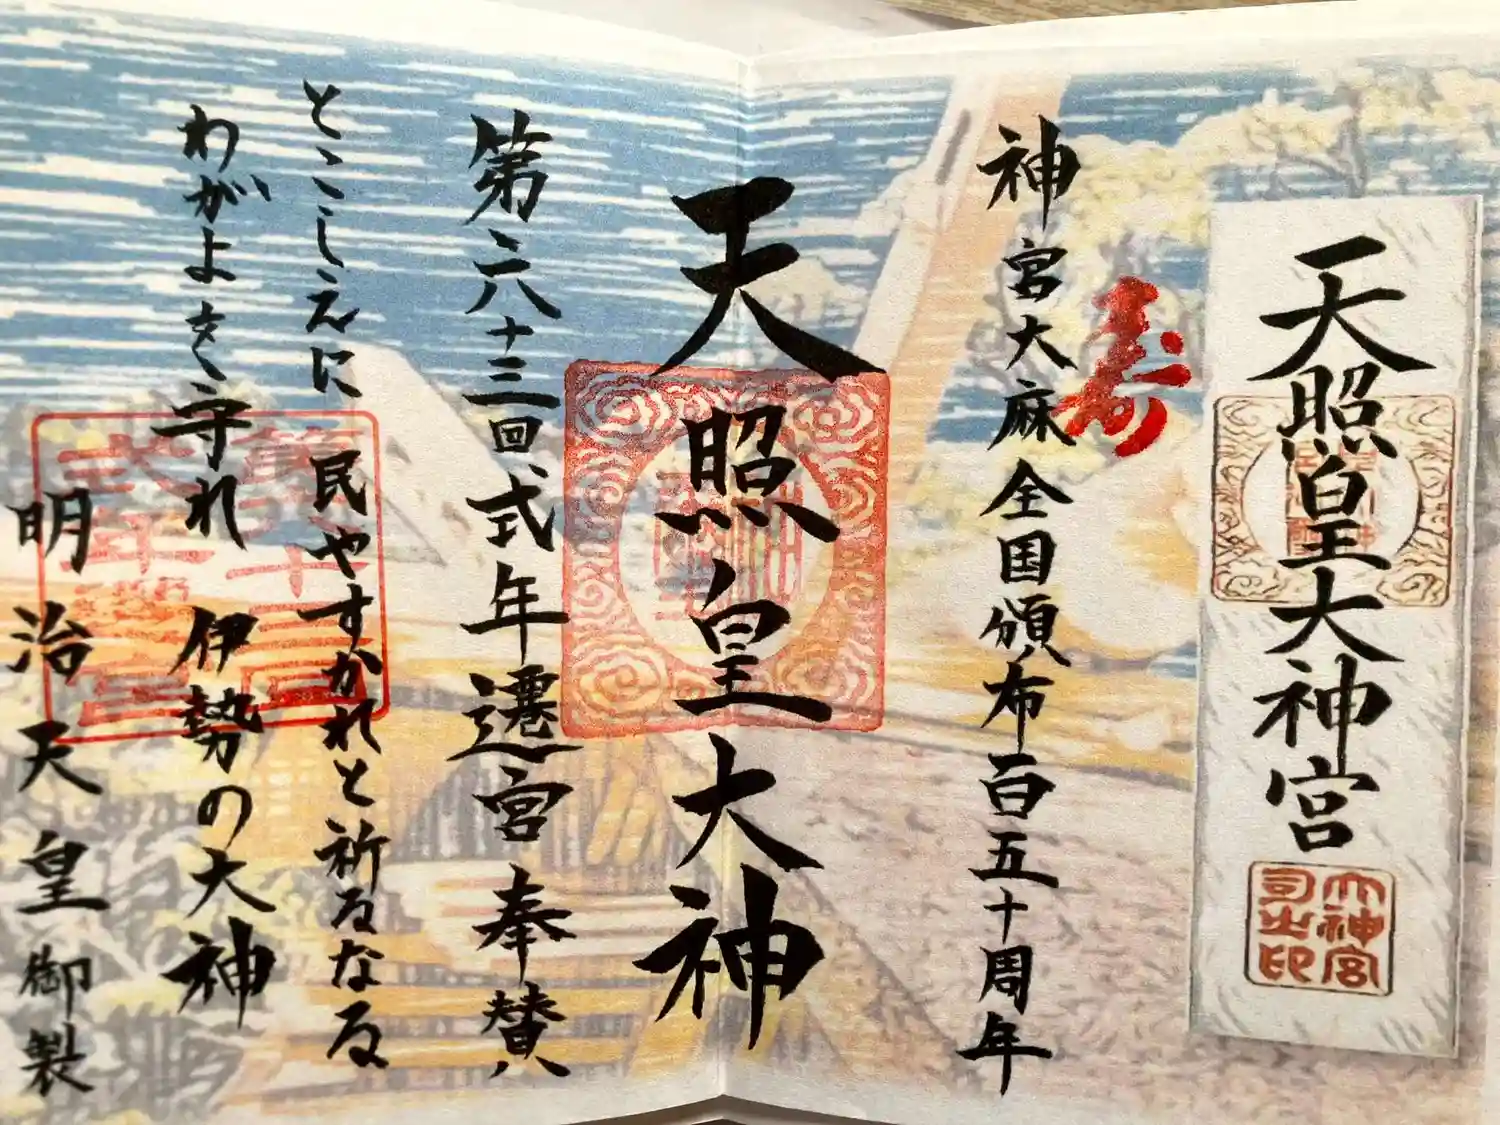 天照皇大神宮
大神宮
司之印
寿
神宮大麻全国頒布百五十周年
天照皇大神
第六十三回式年遷宮奉賛
とこしえに民やすかれと祈るなる
わがよを守れ伊勢の大神
明治天皇御製